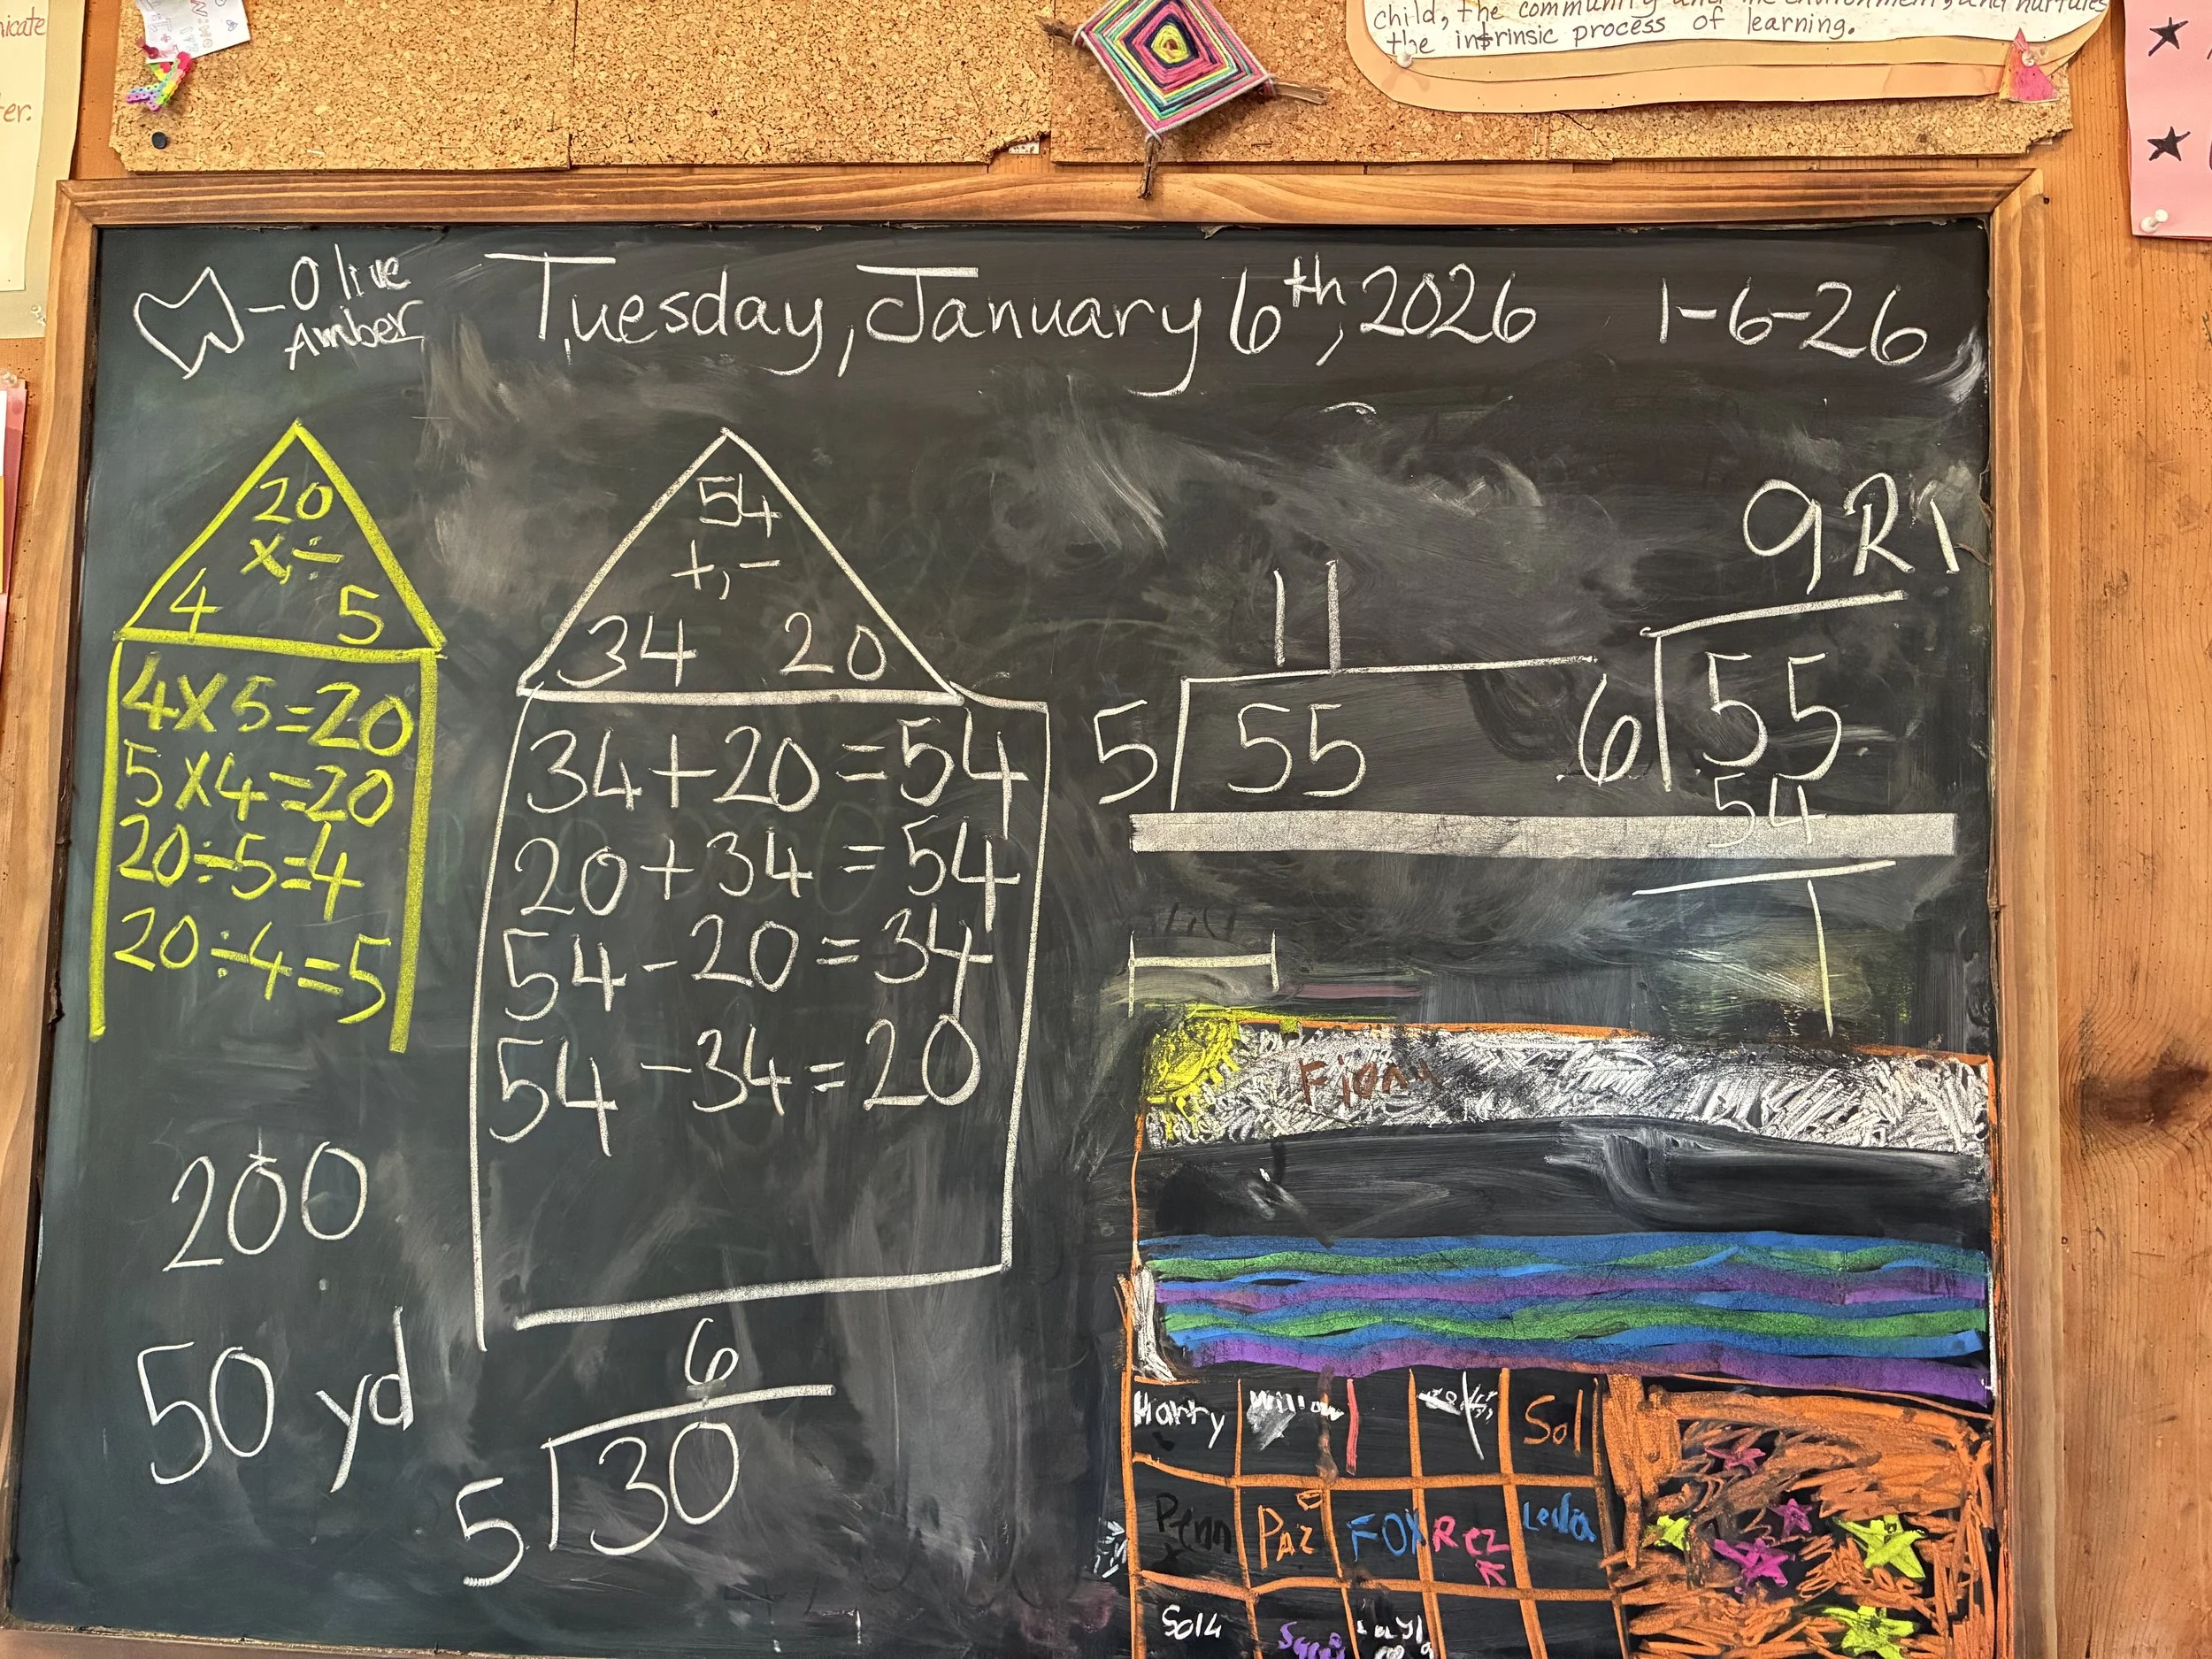 child, the community and the environment, and nurtures
the intrinsic process of learning.
nicate
ter.
Olive
Amber
Tuesday, January 6th, 2026
1-6-26
20
x, ÷
4 5
4x5=20
5x4=20
20÷5=4
20÷4=5
200
50 yd
54
+, -
34 20
34+20=54
20+34=54
54-20=34
54-34=20
6
5 30
11
5 55
9 R1
6 55
54
1
Harry Willow Sol
Penn Paz FOX Rez Leda